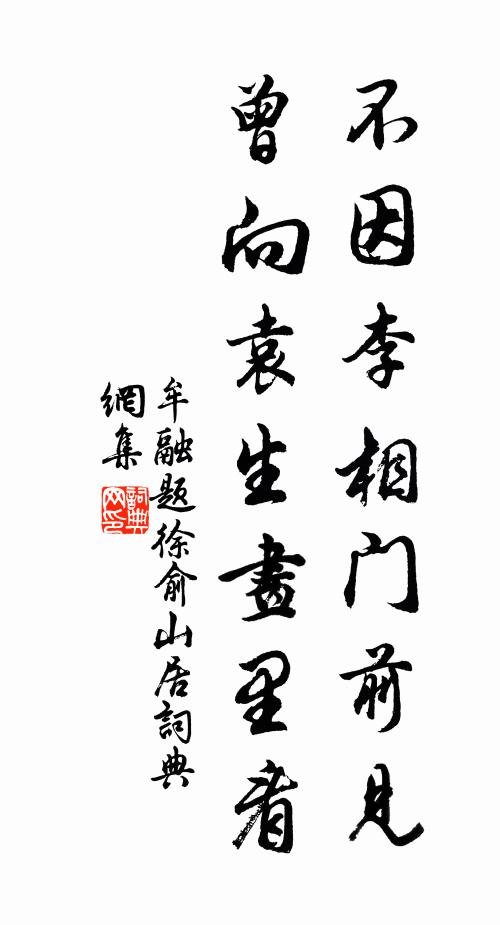 不因李相門前見
曾向袁生畫里看
牟融題徐俞山居詞典
網集
詞典
网印